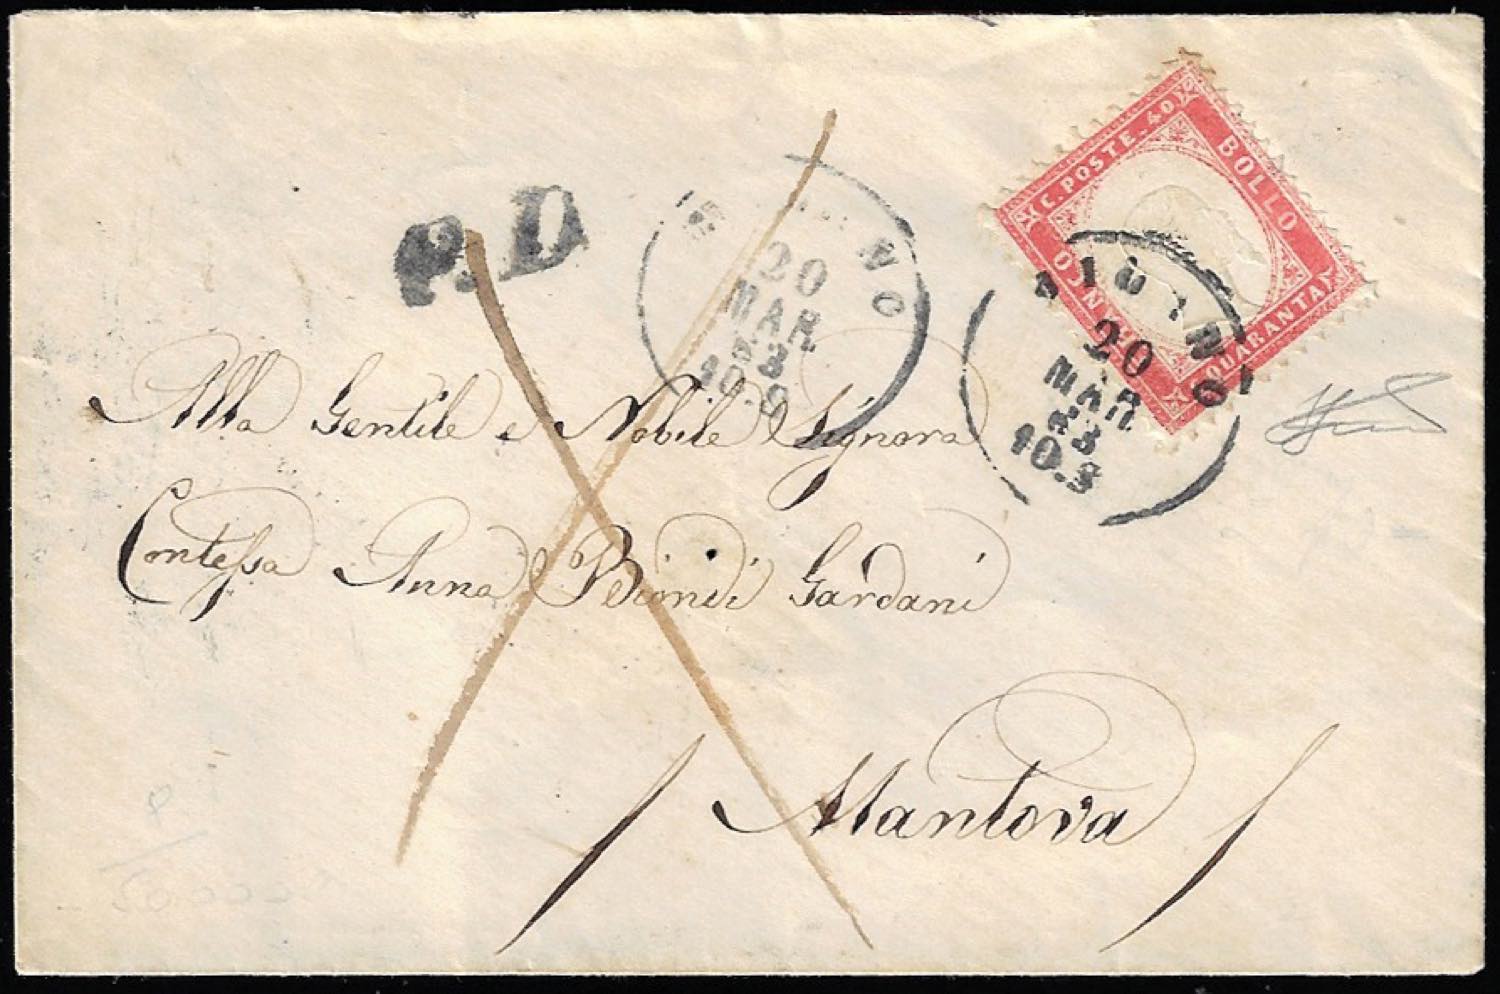 P.D
20
MAR
63
10.S
C. POSTE. 40
BOLLO
QUARANTA
FRANCO
20
MAR
63
10.S
Alla Gentile e Nobile Signora
Contessa Anna Biondi Gardani
Mantova